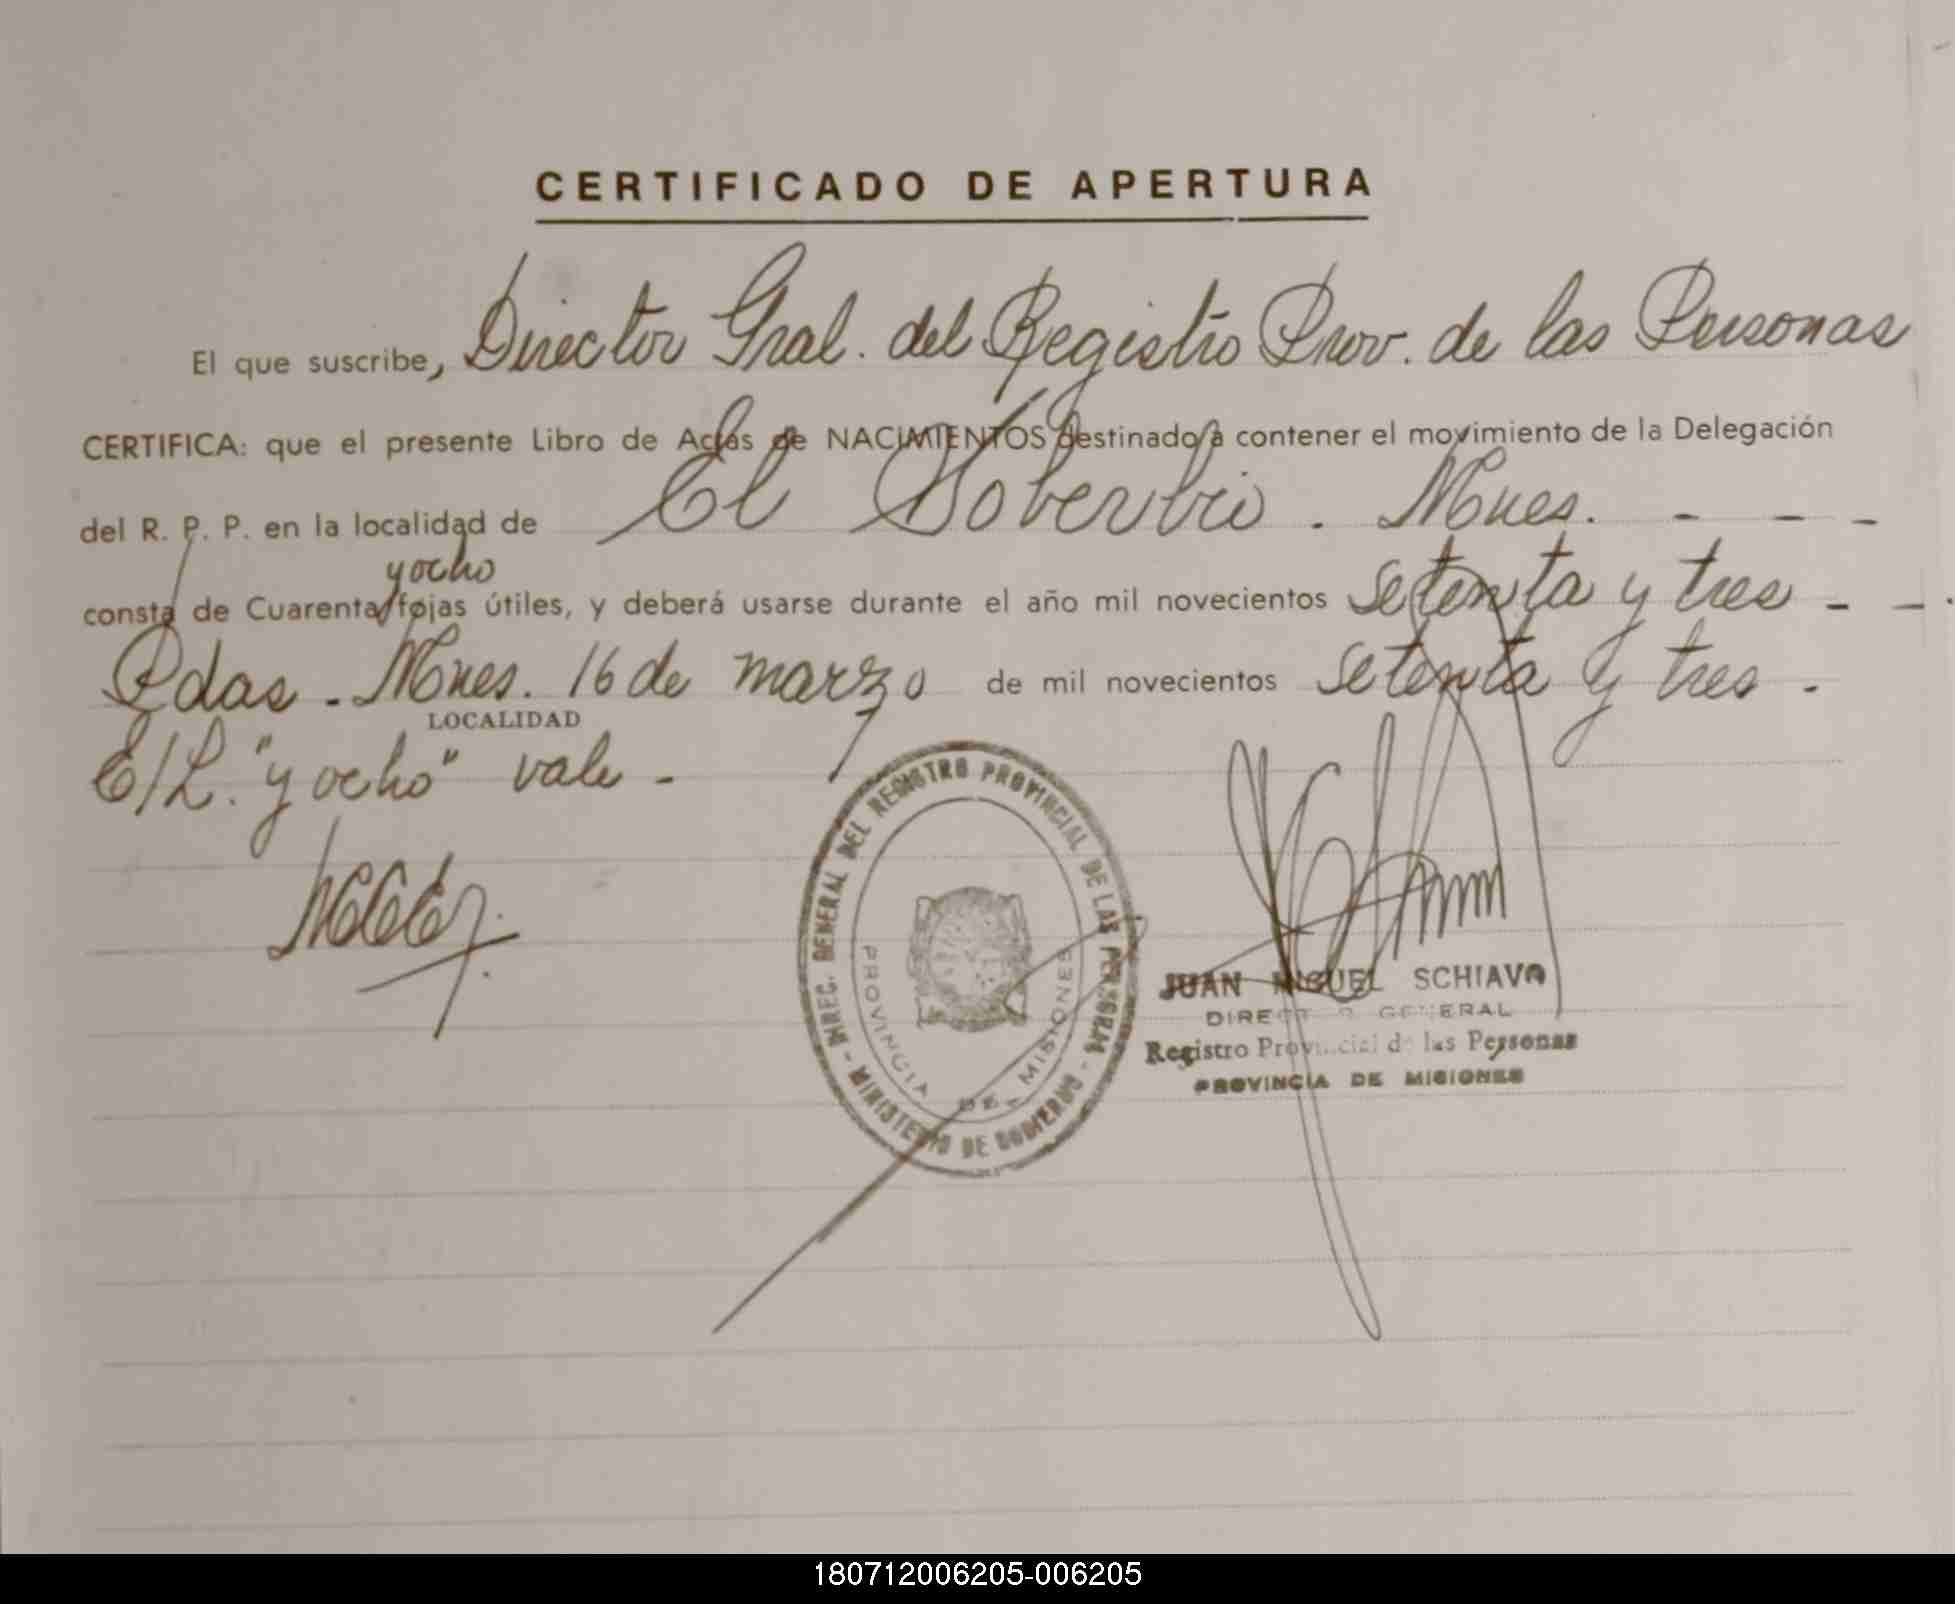 CERTIFICADO DE APERTURA
El que suscribe, Director Gral. del Registro Prov. de las Personas
CERTIFICA: que el presente Libro de Actas de NACIMIENTOS destinado a contener el movimiento de la Delegación
del R. P. P. en la localidad de El Soberbio. Mnes. - - -
y ocho
consta de Cuarenta/fojas útiles, y deberá usarse durante el año mil novecientos setenta y tres - -.
Pdas - Mnes. 16 de marzo de mil novecientos setenta y tres.
LOCALIDAD
E/L. "y ocho" vale -
DIREC. GENERAL DEL REGISTRO PROVINCIAL DE LAS PERSONAS - MINISTERIO DE GOBIERNO -
PROVINCIA DE MISIONES
JUAN MIGUEL SCHIAVO
DIRECTOR GENERAL
Registro Provincial de las Personas
PROVINCIA DE MISIONES
180712006205-006205